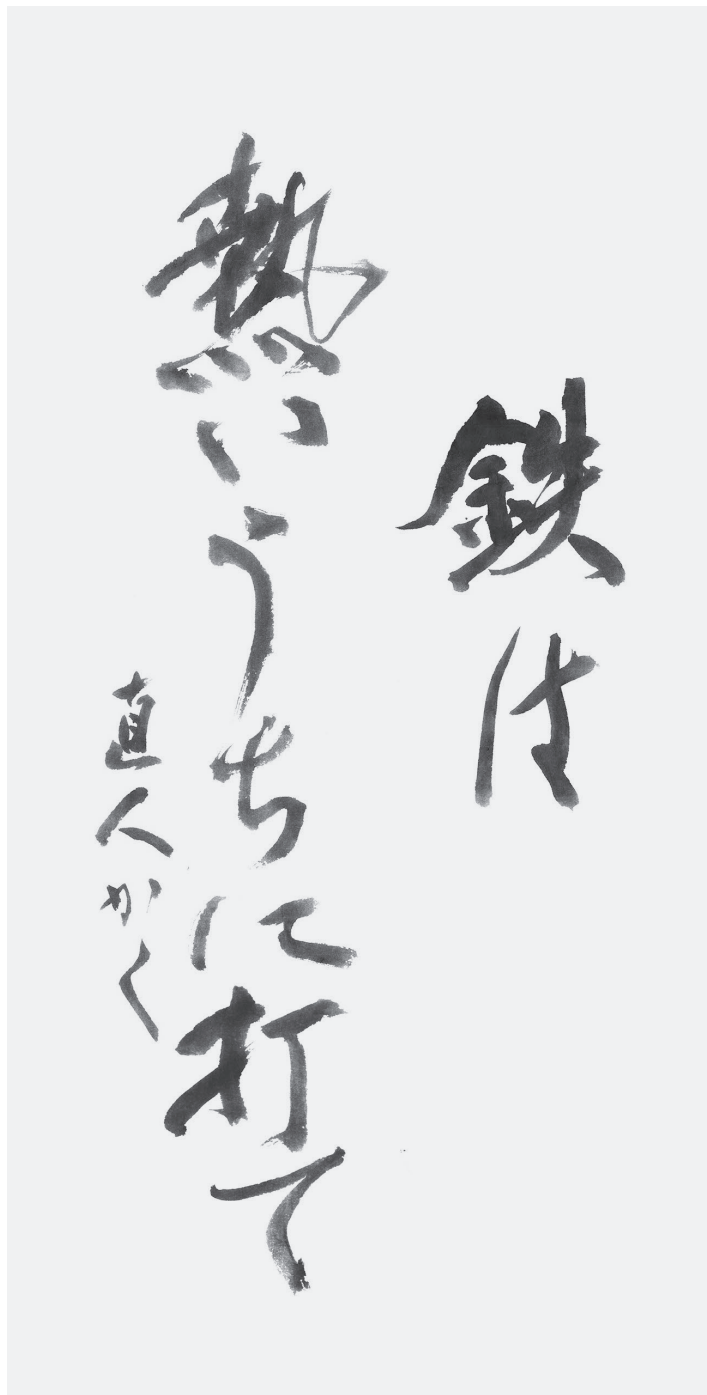 鉄は
熱いうちに打て
直人かく